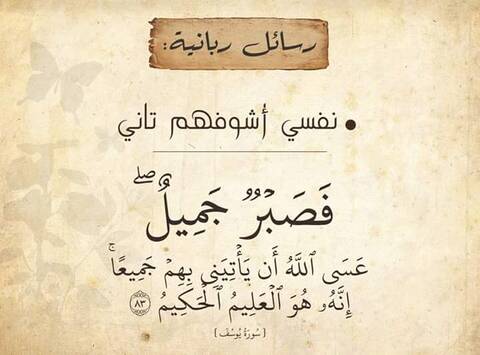 رسائل ربانية:
• نفسي أشوفهم تاني
فَصَبْرٌ جَمِيلٌ ۖ
عَسَى ٱللَّهُ أَن يَأْتِيَنِى بِهِمْ جَمِيعًا ۚ
إِنَّهُۥ هُوَ ٱلْعَلِيمُ ٱلْحَكِيمُ ٨٣
[ سُورَةُ يُوسُفَ ]